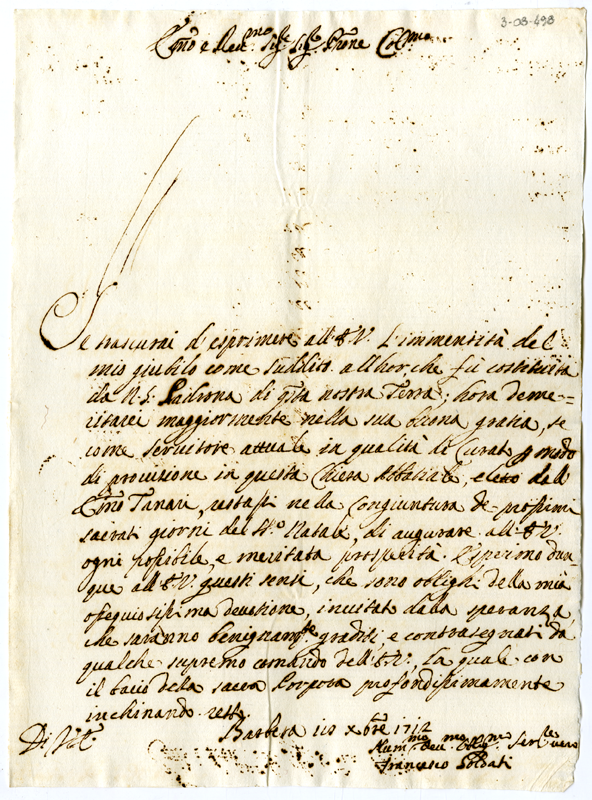 3-08-498
Emo e Rev.mo Sig.r Sig.r Prone Col.mo
Se trascurai d'esprimere all'E.V. l'immensità del
mio giubilo come suddito allhor che fù costituita
da N.S. Padrona di q.sta nostra Terra; hora deme=
ritarei maggiormente nella sua buona gratia, se
come servitore attuale in qualità di Curato p modo
di provisione in questa Chiesa Abbatiale, eletto dall
Emo Tanari, restassi nella congiuntura de prossimi
sacrati giorni del S.to Natale, di augurare all'E.V.
ogni possibile, e meritata prosperità. Esprimo dun
que all'E.V. questi sensi, che sono oblighi della mia
ossequiosissima devotione, invitato dalla speranza,
che saranno benignam.te graditi e contrasegnati da
qualche supremo comando dell'E.V., la quale con
il bacio dela sacra Porpora profondissimamente
inchinando resto
Barbera xbre 1712
Di V.E.
Hum.mo Dev.mo Oblig.mo Ser.re vero
Francesco Soldati